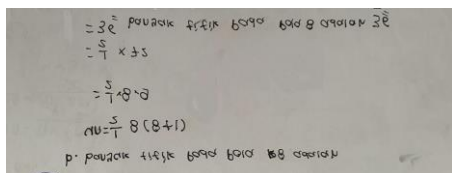 b. banyak titik pada pola ke 8 adalah
Un = 1/2 8 (8+1)
= 1/2 . 8 . 9
= 1/2 x 72
= 36 banyak titik pada pola 8 adalah 36